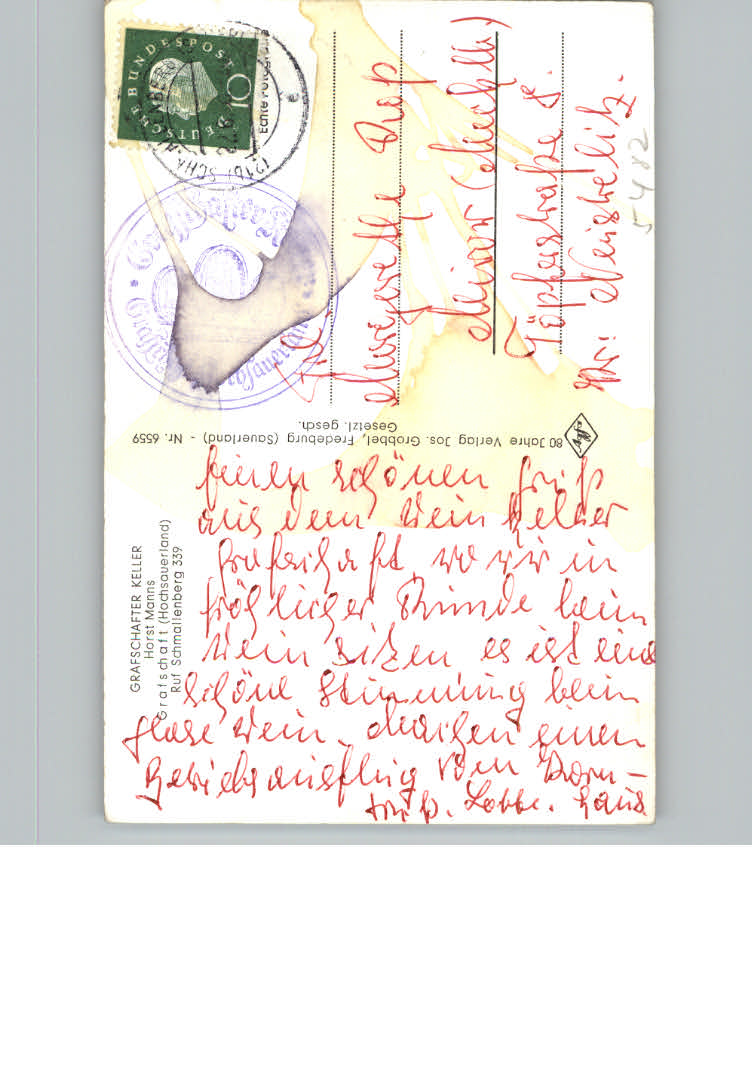 GRAFSCHAFTER KELLER
Horst Manns
Grafschaft (Hochsauerland)
Ruf Schmallenberg 339
einen schönen Gruß
aus dem Wein Keller
Grafschaft, wo wir in
fröhlicher Stunde beim
Wein sitzen es ist eine
schöne Stimmung beim
Glase Wein. Machen einen
Betriebsausflug vom
Hans
80 Jahre Verlag Jos. Grobbel, Fredeburg (Sauerland) - Nr. 6559
Gesetzl. gesch.
Agfa
DEUTSCHE BUNDESPOST
10
Echte Fotografie
Frl.
Annegrethe
Mirow (Meckl.)
Töpferstraße 8.
Kr: Neustrelitz.
5482